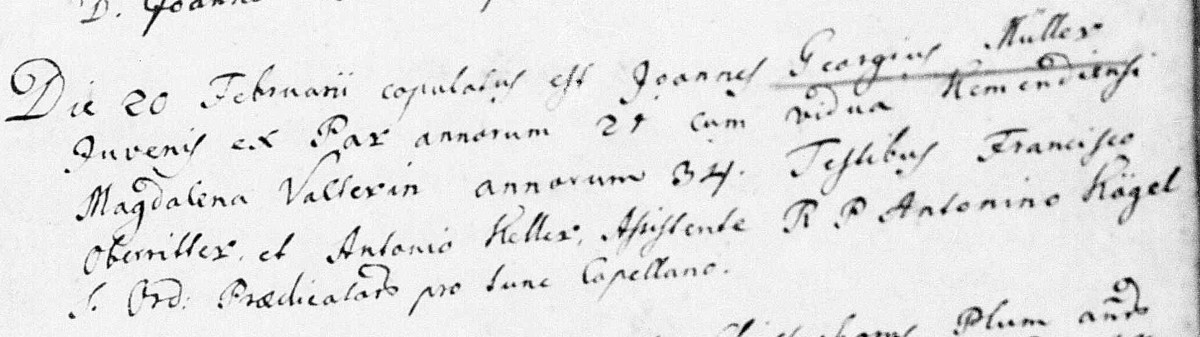 D. Joann
Die 20 Februarii copulatus est Joannes Georgius Müller
Juvenis ex Par annorum 21 cum vidua Kemendiensi
Magdalena Valterin annorum 34. Testibus Francisco
Oberritter, et Antonio Keller, Assistente R P Antonino Kögel
S. Ord: Prædicatorum pro tunc Capellano.
Plum